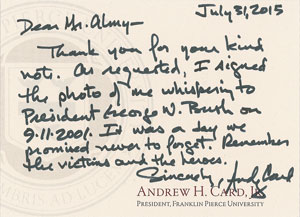 July 31, 2015
Dear Mr. Almy-
Thank you for your kind
note. As requested, I signed
the photo of me whispering to
President George W. Bush on
9.11.2001. It was a day we
promised never to forget. Remember
the victims and the heroes.
Sincerely, Andy Card
ANDREW H. CARD, JR.
PRESIDENT, FRANKLIN PIERCE UNIVERSITY